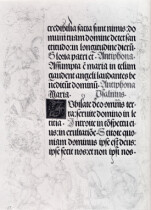 credibilia facta sunt nimis: do
mum tuam domine decet san
ctitudo in longitudine dierū
Gloria patri et. Antiphona
Assumpta ē maria in celum
gaudent angeli laudantes be
nedicūt dominū. Antiphona
Maria. Psalmus.
Iubilate deo omnis ter
ra: seruite domino in le
ticia. Introite in cōspectu ei
us: in exultatiōe. Scitote quo
niam dominus ipse est deus:
ipse fecit nos et non ipsi nos.